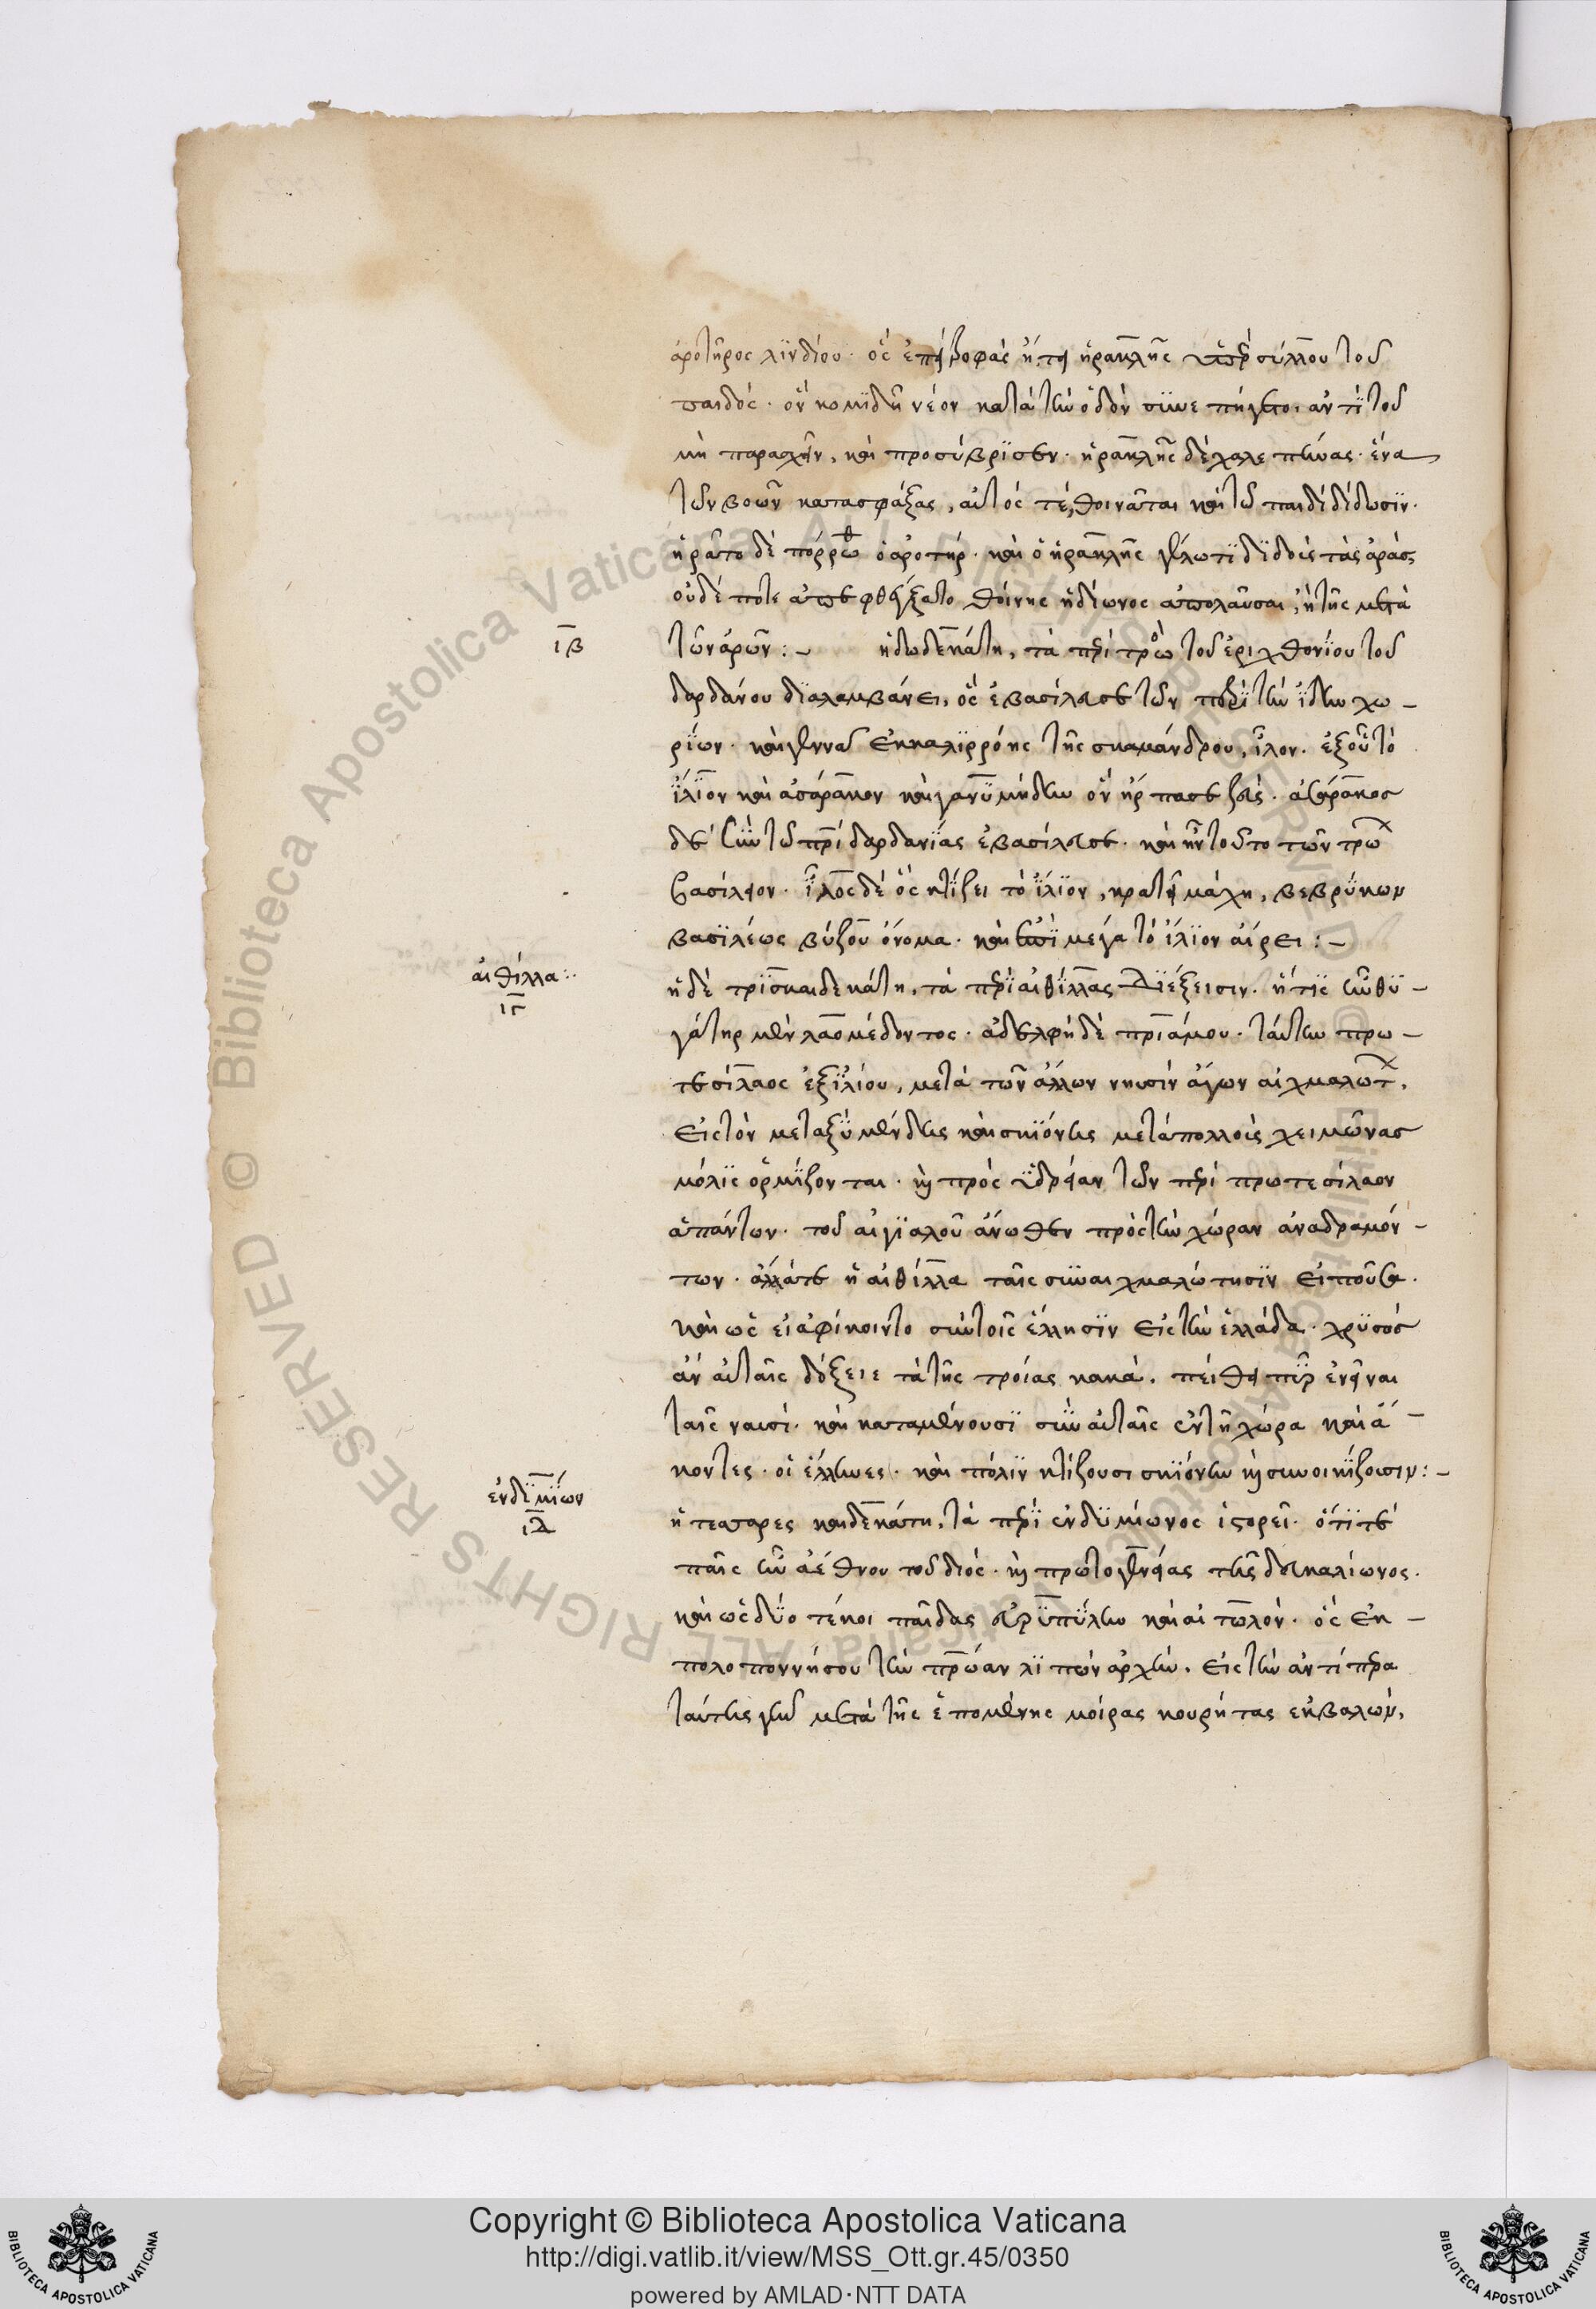 ἀροτῆρος λινδίου· ὃς ἐπὶ τροφὰς ᾔτει ἡρακλῆς ὑπὲρ ὕλλου τοῦ
παιδός· ὃν κομιδῇ νέον κατὰ τὴν ὁδὸν συνεπήγετο. ἀντὶ τοῦ
μὴ παρασχεῖν, καὶ προσύβρισεν· ἡρακλῆς δὲ χαλεπήνας· ἕνα
τῶν βοῶν κατασφάξας, αὐτός τε, θοινᾶται καὶ τῷ παιδὶ δίδωσιν·
ἠρᾶτο δὲ πόρρωθ ὁ ἀροτήρ· καὶ ὁ ἡρακλῆς γέλωτι διδοὺς τὰς ἀράς,
οὐδέποτε ἀπεφθέγξατο θοίνης ἡδίωνος ἀπολαῦσαι, ἢ τῆς μετὰ
ιβ
τῶν ἀρῶν:– ἡ δωδεκάτη, τὰ περὶ τρωὸ τοῦ ἐριχθονίου τοῦ
δαρδάνου διαλαμβάνει, ὃς ἐβασίλευσε τῶν περὶ τὴν ἴδην χω–
ρίων· καὶ γεννᾶ ἐκ καλιρρόης τῆς σκαμάνδρου, ἶλον. ἐξ οὗ τὸ
ἴλιον καὶ ἀσάρακον καὶ γανυμήδην ὃν ἥρπασε ζεύς· ἀσάρακος
δὲ σὺν τῷ πρὶ δαρδανίας ἐβασίλευσε· καὶ ἦν τοῦτο τῶν τρώ
βασίλειον· ἶλος δὲ ὃς κτίζει τὸ ἴλιον, κρατεῖ μάχη, βεβρύκων
βασιλέως βύζου ὄνομα· καὶ ἐπὶ μέγα τὸ ἴλιον αἴρει:–
αἰθίλλα:·
ιγ
ἡ δὲ τρισκαιδεκάτη, τὰ περὶ αἰθίλλας διέξεισιν· ἥτις ἦν θυ–
γάτηρ μὲν λαομέδοντος· ἀδελφὴ δὲ πριάμου· ταύτην πρω–
τεσίλαος ἐξ ἰλίου, μετὰ τῶν ἄλλων νηυσὶν ἄγων αἰχμαλωτ,
εἰς τὸν μεταξὺ μένδης καὶ σκιόνης μετὰ πολλοὺς χειμῶνας
μόλις ὁρμίζονται· καὶ πρὸς ὑδρείαν τῶν περὶ πρωτεσίλαον
ἁπάντων· τοῦ αἰγιαλοῦ ἄνωθεν πρὸς τὴν χώραν ἀναδραμόν–
των· ἄλλά τε ἡ αἰθίλλα ταῖς συναιχμαλώτησιν εἰποῦσα·
καὶ ὡς εἰ ἀφίκοιντο σὺν τοῖς ἕλλησιν εἰς τὴν ἑλλάδα· χρυσός
ἂν αὐταῖς δόξειε τὰ τῆς τροίας κακά. πείθει πῦρ ἐνεῖναι
ταῖς ναυσί· καὶ καταμένουσι σὺν αὐταῖς ἐν τῇ χώρα καὶ ἄ–
κοντες· οἱ ἕλληνες· καὶ πόλιν κτίζουσι σκιόνην καὶ συνοικίζουσιν:–
ἐνδιμίων
ιδ
ἡ τεσσαρεσκαιδεκάτη, τὰ περὶ ἐνδυμίωνος ἱστορεῖ· ὅτί τε
παῖς ἦν ἀέθνου τοῦ διός· καὶ πρωτογενείας τῆς δευκαλίωνος·
καὶ ὡς δύο τέκοι παῖδας εὐρυπύλην καὶ αἰτωλόν· ὃς ἐκ–
πολοποννήσου τὴν πρώαν λιπὼν ἀρχήν, εἰς τὴν ἀντίπερα
ταύτης γῆν μετὰ τῆς ἑπομένης μοίρας κουρήτας ἐκβαλών,
Copyright © Biblioteca Apostolica Vaticana
http://digi.vatlib.it/view/MSS_Ott.gr.45/0350
powered by AMLAD·NTT DATA